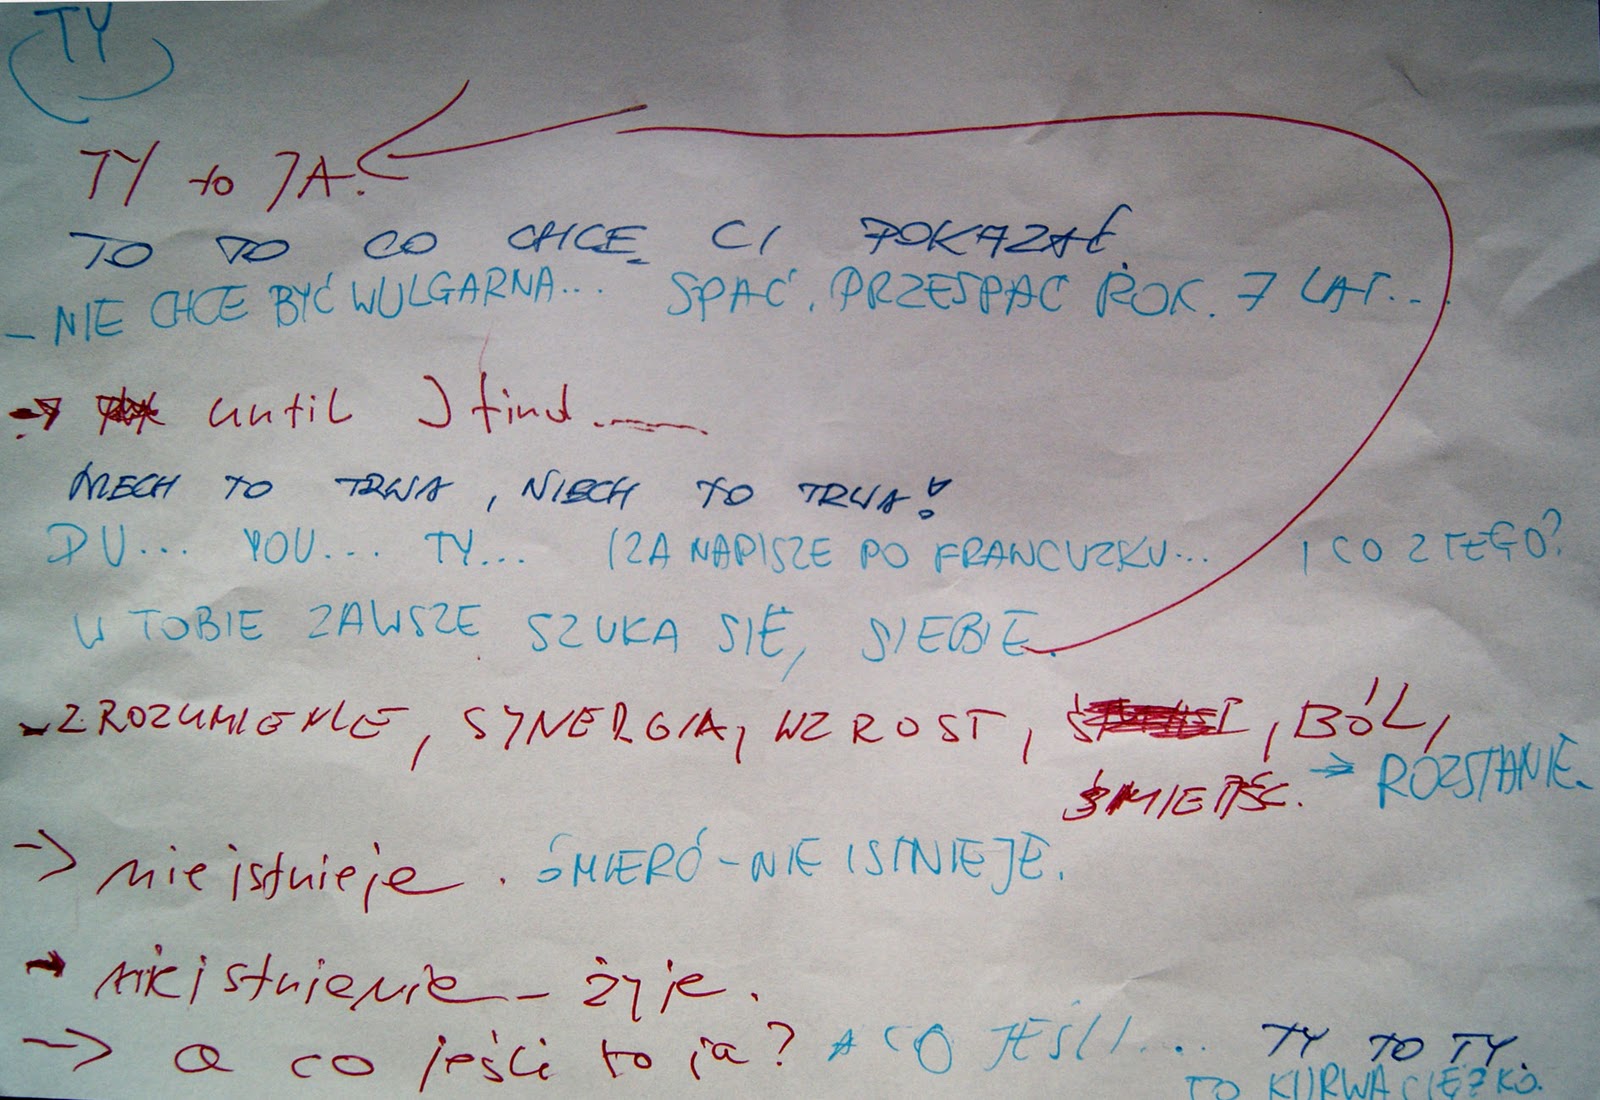 TY
TY to JA.
TO TO CO CHCĘ CI POKAZAĆ.
- NIE CHCE BYĆ WULGARNA... SPAĆ. PRZESPAC ROK. 7 LAT...
→ until I find.
NIECH TO TRWA, NIECH TO TRWA!
DU... YOU... TY... IZA NAPISZE PO FRANCUZKU... I CO Z TEGO?
W TOBIE ZAWSZE SZUKA SIĘ, SIEBIE.
- ZROZUMIENIE, SYNERGIA, WZROST, , BÓL,
→ ROZSTANIE.
→ nie istnieje. ŚMIERĆ - NIE ISTNIEJE.
→ nieistnienie - żyje.
→ a co jeśli to ja? A CO JEŚLI... TY TO TY.
TO KURWA CIĘŻKO.